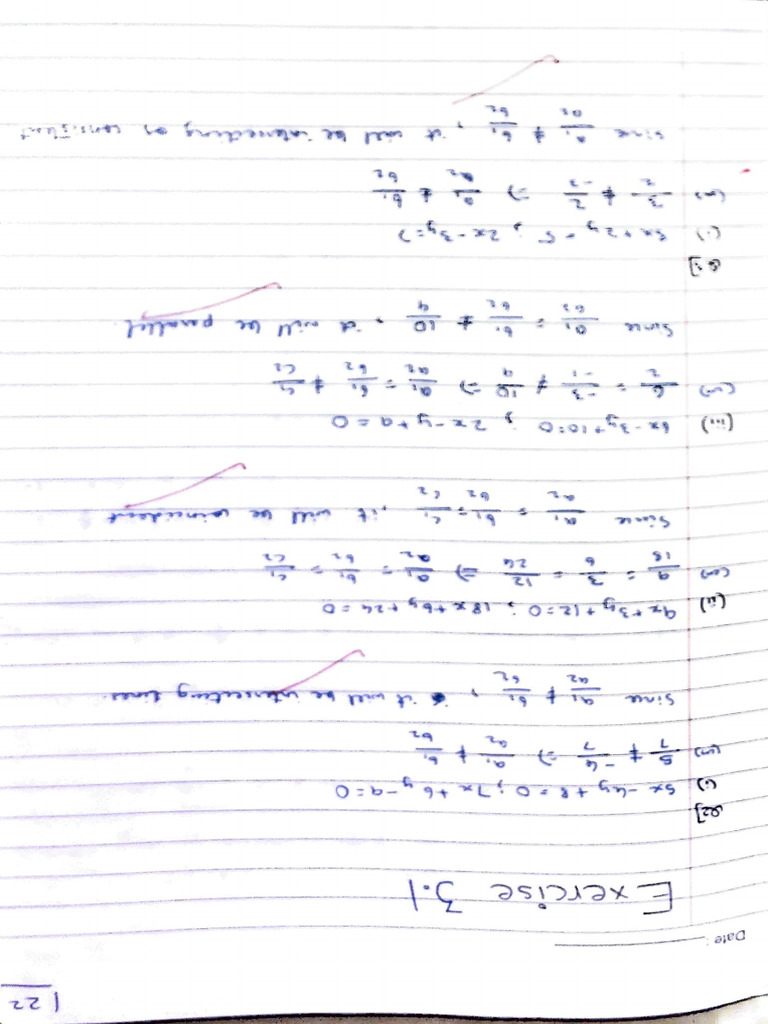 1 22
Date:
Exercise 3.1
Q2]
(i) 5x-4y+8=0; 7x+6y-9=0
(a) 5/7 ≠ -4/7 ⇒ a₁/a₂ ≠ b₁/b₂
Since a₁/a₂ ≠ b₁/b₂, it will be intersecting lines.
(ii) 9x+3y+12=0; 18x+6y+24=0
(a) 9/18 = 3/6 = 12/24 ⇒ a₁/a₂ = b₁/b₂ = c₁/c₂
Since a₁/a₂ = b₁/b₂ = c₁/c₂, it will be coincident
(iii) 6x-3y+10=0; 2x-y+9=0
(a) 6/2 = -3/-1 ≠ 10/9 ⇒ a₁/a₂ = b₁/b₂ ≠ c₁/c₂
Since a₁/ = b₁/b₂ ≠ 10/9, it will be parallel.
Q3]
(i) 3x+2y=5; 2x-3y=7
(a) 3/2 ≠ 2/-3 ⇒ a₁/a₂ ≠ b₁/b₂
Since a₁/a₂ ≠ b₁/b₂, it will be intersecting or consistent